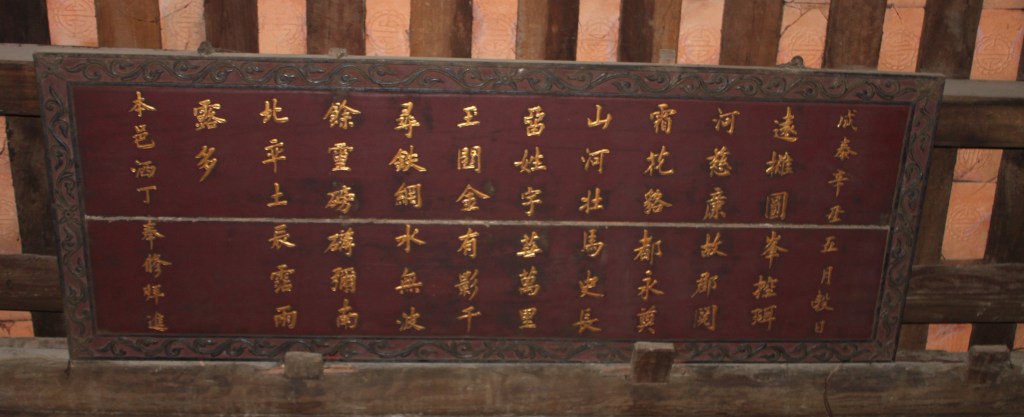 成泰辛丑五月穀日
遠樵圓峯控珥
河慈廉故郡閱
霜花路都永奠
山河壯馬史長
留姓宇萬里
王金有影千
尋鉄網水無波
餘靈磅礴彌南
北率土辰霑雨
露多
本邑洒丁奉修輝進